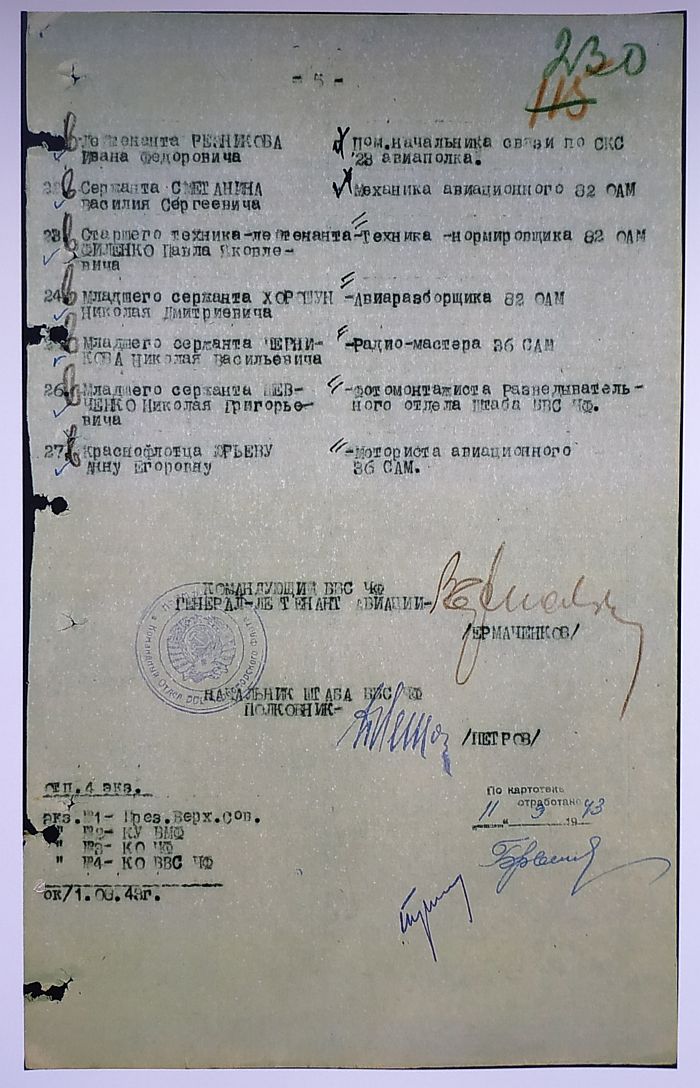 230
- 5 -
115
Лейтенанта РЕЗНИКОВА Пом.начальника связи по СКС
Ивана Федоровича 28 авиаполка.
22. Сержанта СМЕТАНИНА Механика авиационного 82 ОАМ
Василия Сергеевича
23. Старшего техника-лейтенанта-Техника -нормировщика 82 ОАМ
ФИЛЕНКО Павла Яковле-
вича
24. Младшего сержанта ХОРОШУН -Авиаразборщика 82 ОАМ
Николая Дмитриевича
Младшего сержанта ЧЕРНИ- -Радио-мастера 36 САМ
КОВА Николая Васильевича
26. Младшего сержанта ШЕВ- -Фотомонтажиста Разведыватель-
ЧЕНКО Николая Григорье- ного отдела Штаба ВВС ЧФ.
вича
27. Краснофлотца ЮРЬЕВУ -Моториста авиационного
Анну Егоровну 36 САМ.
КОМАНДУЮЩИЙ ВВС ЧФ
ГЕНЕРАЛ-ЛЕЙТЕНАНТ АВИАЦИИ-
/ЕРМАЧЕНКОВ/
НАЧАЛЬНИК ШТАБА ВВС ЧФ
ПОЛКОВНИК-
/ПЕТРОВ/
отп.4 экз.
экз.№1- През.Верх.Сов.
" №2- КУ ВМФ
" №3- КО ЧФ
" №4- КО ВВС ЧФ
По картотеке
отработано
11 " 9 19 43